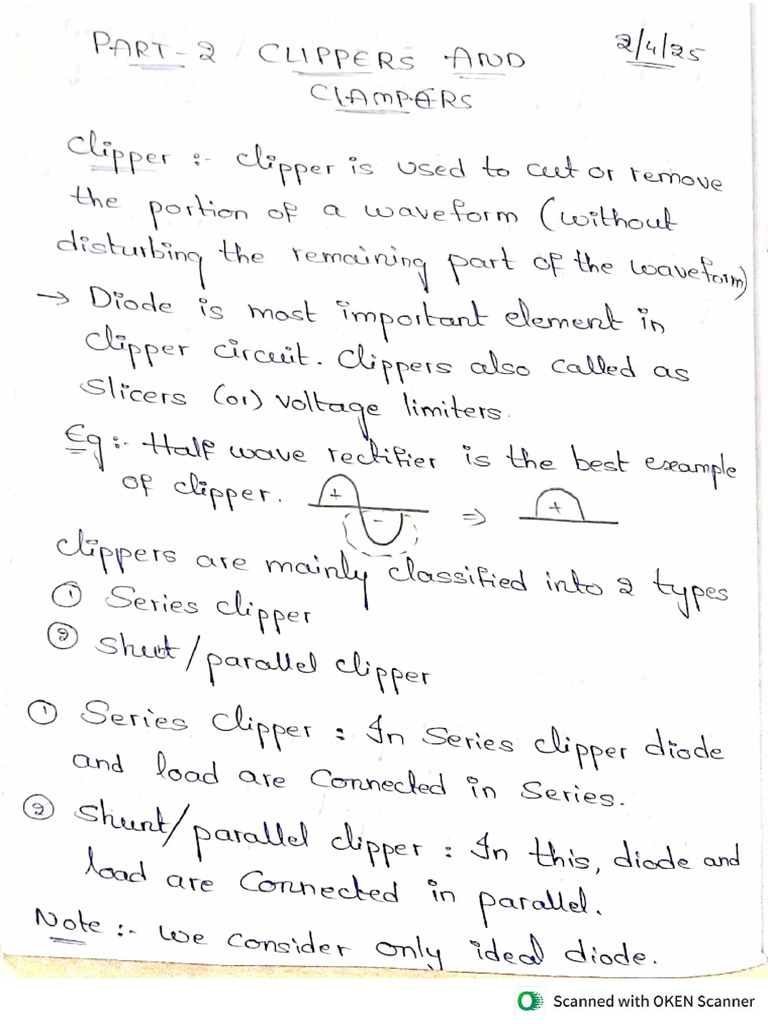 PART-2 CLIPPERS AND 2/4/25
CLAMPERS
Clipper :- Clipper is used to cut or remove
the portion of a waveform (without
disturbing the remaining part of the waveform)
→ Diode is most important element in
clipper circuit. Clippers also called as
slicers (or) voltage limiters.
Eg :- Half wave rectifier is the best example
of clipper. + - ⇒ +
Clippers are mainly classified into 2 types
① Series clipper
② Shut/parallel clipper
① Series Clipper : In Series clipper diode
and load are Connected in Series.
② Shunt/parallel clipper : In this, diode and
load are Connected in parallel.
Note :- We consider only ideal diode.
Scanned with OKEN Scanner